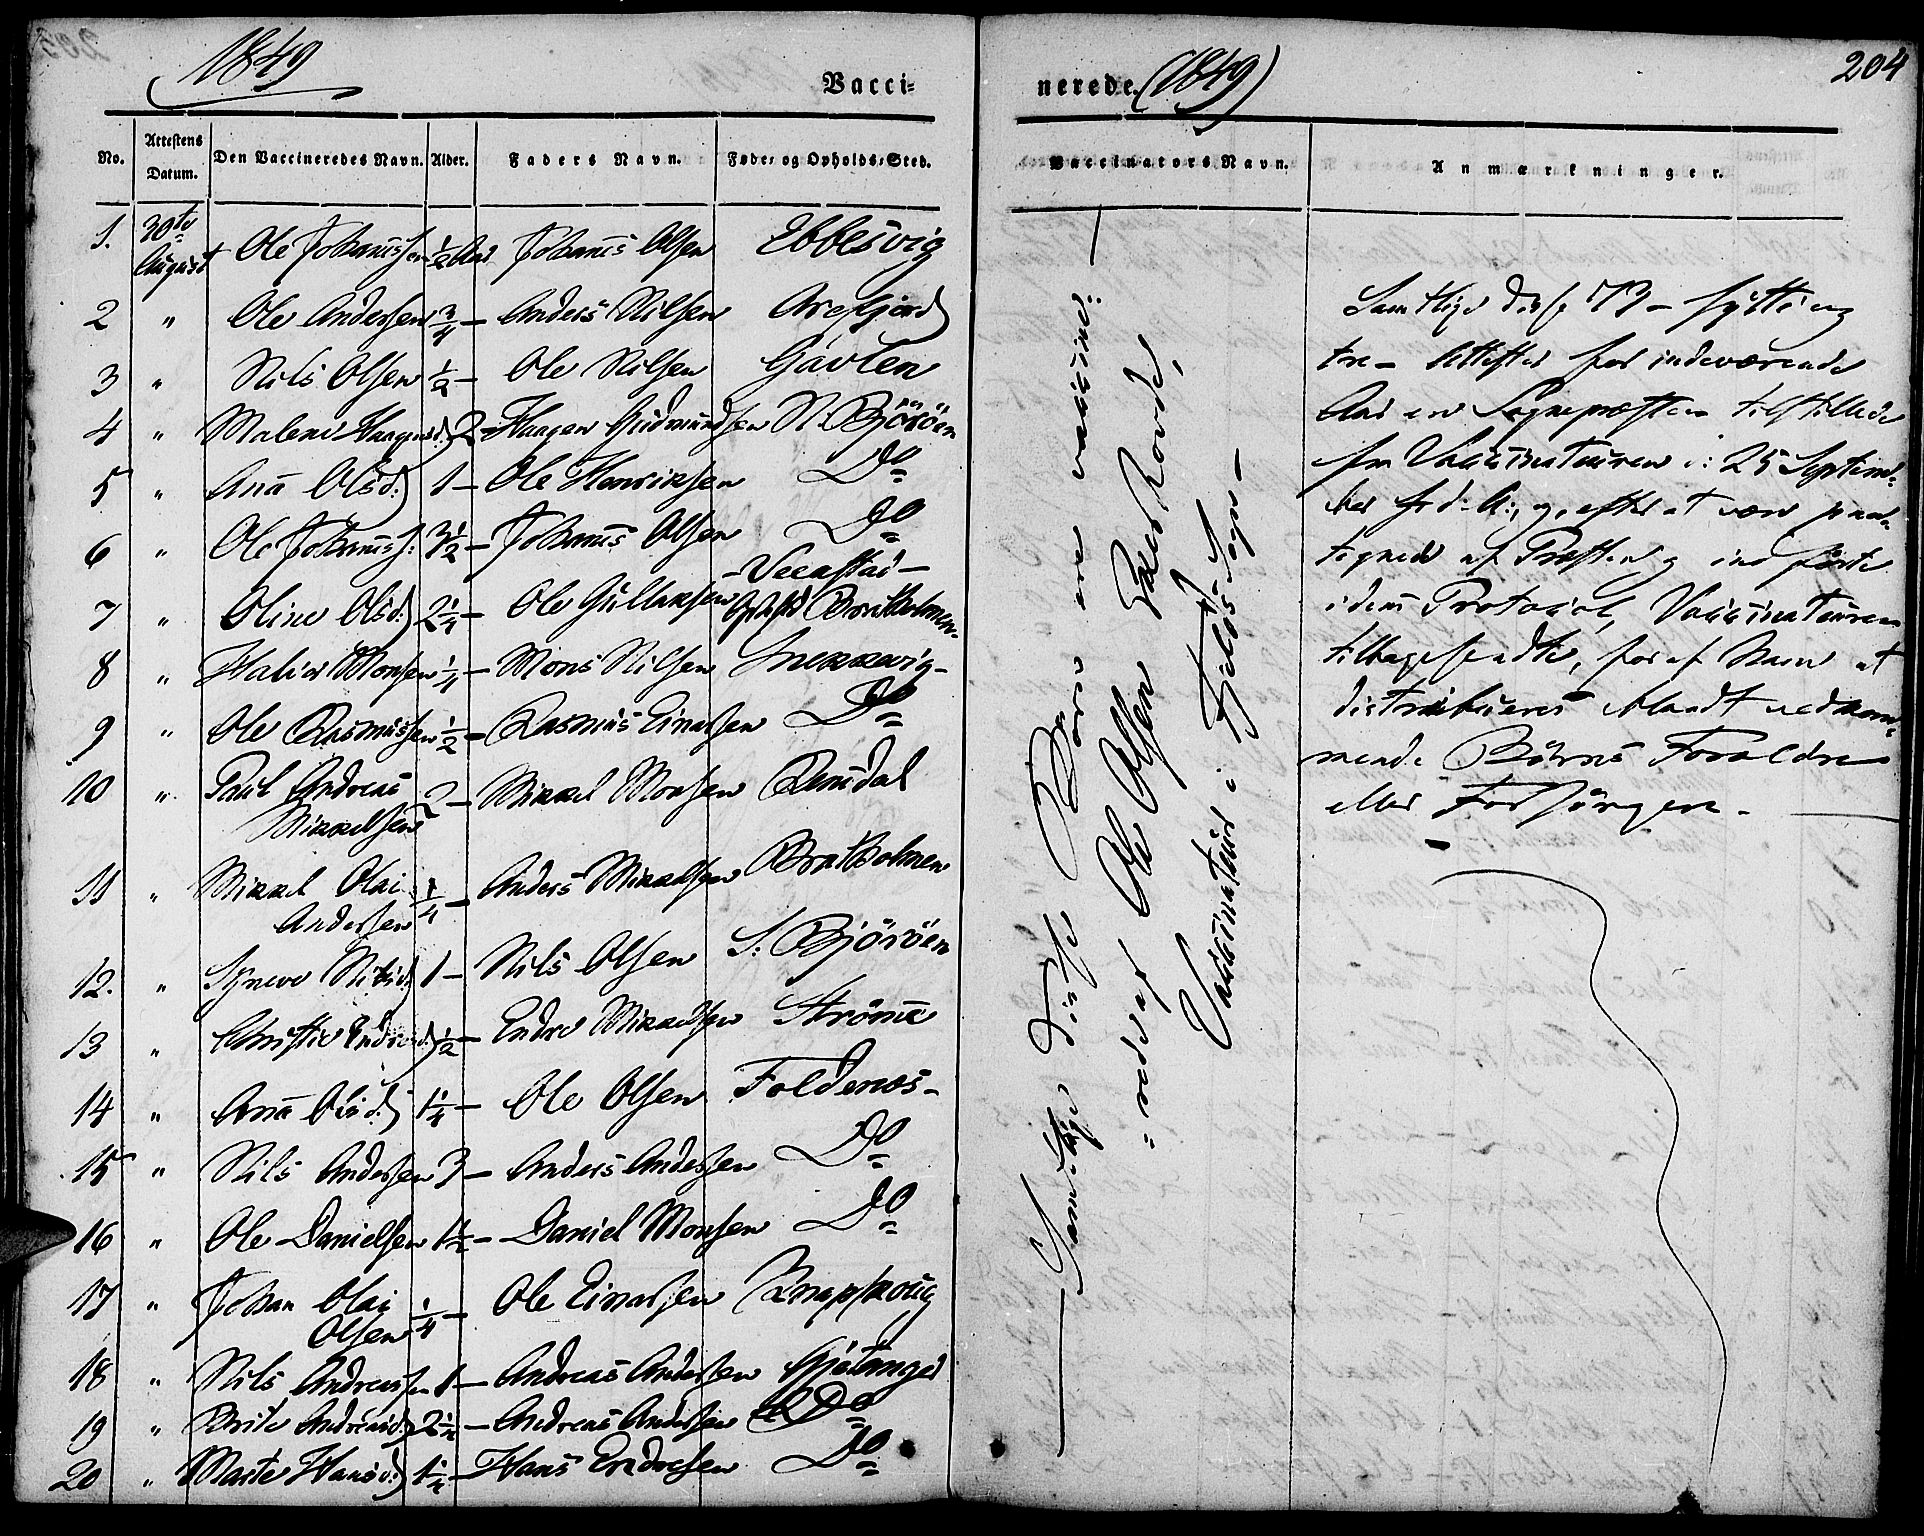 1849
Vacci-
No. Attestens Datum. Den Vaccineredes Navn. Alder. Faders Navn. Føde- og Opholds-Sted.
1. 30te August Ole Johannssen ½ Aar Johanns Olsen Ebbesvig
2 " Ole Andersen ¾ – Anders Nilsen Arefjord
3 " Nils Olsen ½ – Ole Nilsen Gavlen
4 " Malene Haagensd: 2 – Haagen Gudmundsen N. Björöen
5 " Ana Olsd: 1 – Ole Henriksen Do
6 " Ole Johannss: 3½ – Johanns Olsen Do
– Veeastad –
7 " Oline Olsd: 2¼ – Ole Gullaksen Bratholmen
8 " Halvor Monsen ¼ – Mons Nilsen Snekkevig –
9 " Ole Rasmussen ½ – Rasmus Einarsen Do
10 " Paul Andreas 2 – Mikkel Monsen Ramsdal
Mikkelsen
11 " Mikkel Olai ¼ – Anders Mikkelsen Bratholmen
Andersen
12. " Syneve Nilsd: 1 – Nils Olsen S: Björöen
13 " Christie Endresd: ½ – Endre Mikkelsen Ströme
14 " Ana Olsd: 1¼ – Ole Olsen Foldenæs –
15 " Nils Andersen 3 – Anders Andersen Do
16 " Ole Danielsen 1½ – Daniel Monsen Do
17 " Johan Olai ¼ – Ole Einarsen Knapskoug
Olsen
18 " Nils Andreassen 1 – Andreas Andersen Gjeltanger
19 " Brite Andreasd: 2½ – Andreas Andersen Do
20 " Marte Hansd: 1¼ – Hans Endresen Do
nerede. (1849)
204
Vaccinators Navn. Anmærkninger.
– Samtlige disse Børn ere vaccine: –
= rede af Ole Olsen Eides Rovde,
Vaccinateur i Fjelds Sogn –
Samtlige disse 73 – sytti og
tre – Attester for indeværende
Aar ere Sognepræsten tilstillede
fra Vaccinateuren d: 25 Septem-
ber s: d. A:, og, efter at være paa-
tegnede af Præsten og indförte
i den Protocol, Vaccinateuren
tilbagesendte, for af ham at
distribueres iblandt vedkom-
mende Börns Forældre
eller Forsörgere. –